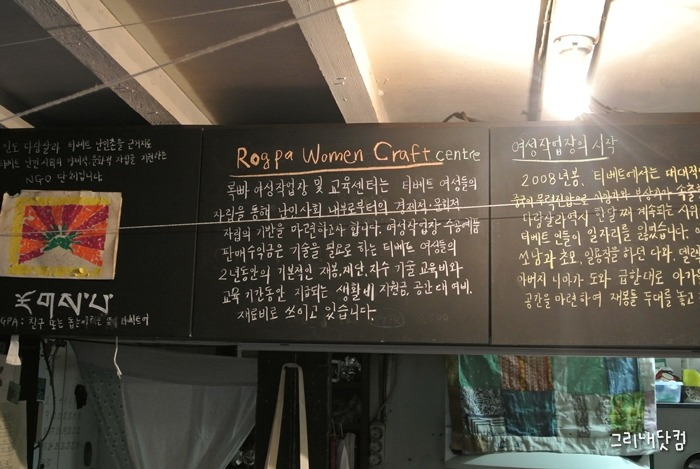 인도 다람살라 티베트 난민촌을 근거지로
티베트 난민 사회의 경제적, 문화적 자립을 지원하는
NGO 단체입니다.
རོགས་པ
GPA : 친구 또는 돕는이
Rogpa Women Craft centre
록빠 여성작업장 및 교육센터는 티베트 여성들의
자립을 통해 난민사회 내부로부터의 경제적·윤리적
자립의 기반을 마련하고자 합니다. 여성작업장 수공예품
판매수익금은 기술을 필요로 하는 티베트 여성들의
2년동안의 기본적인 재봉, 재단, 자수 기술 교육비와
교육 기간동안 지급되는 생활비 지원금, 공간 대여비,
재료비로 쓰이고 있습니다.
여성작업장의 시작
2008년봄, 티베트에서는 대대적
중국의 무력진압으로 사망자와 부상자가 속출
다람살라역시 한달 째 계속되는 시위
티베트인들이 일자리를 잃었습니다.
쏘남과 초모, 일용직을 하던 다와, 덴
아버지 니마가 도와 급한대로 아기
공간을 마련하여 재봉틀 두대를 놓고
그리내닷컴